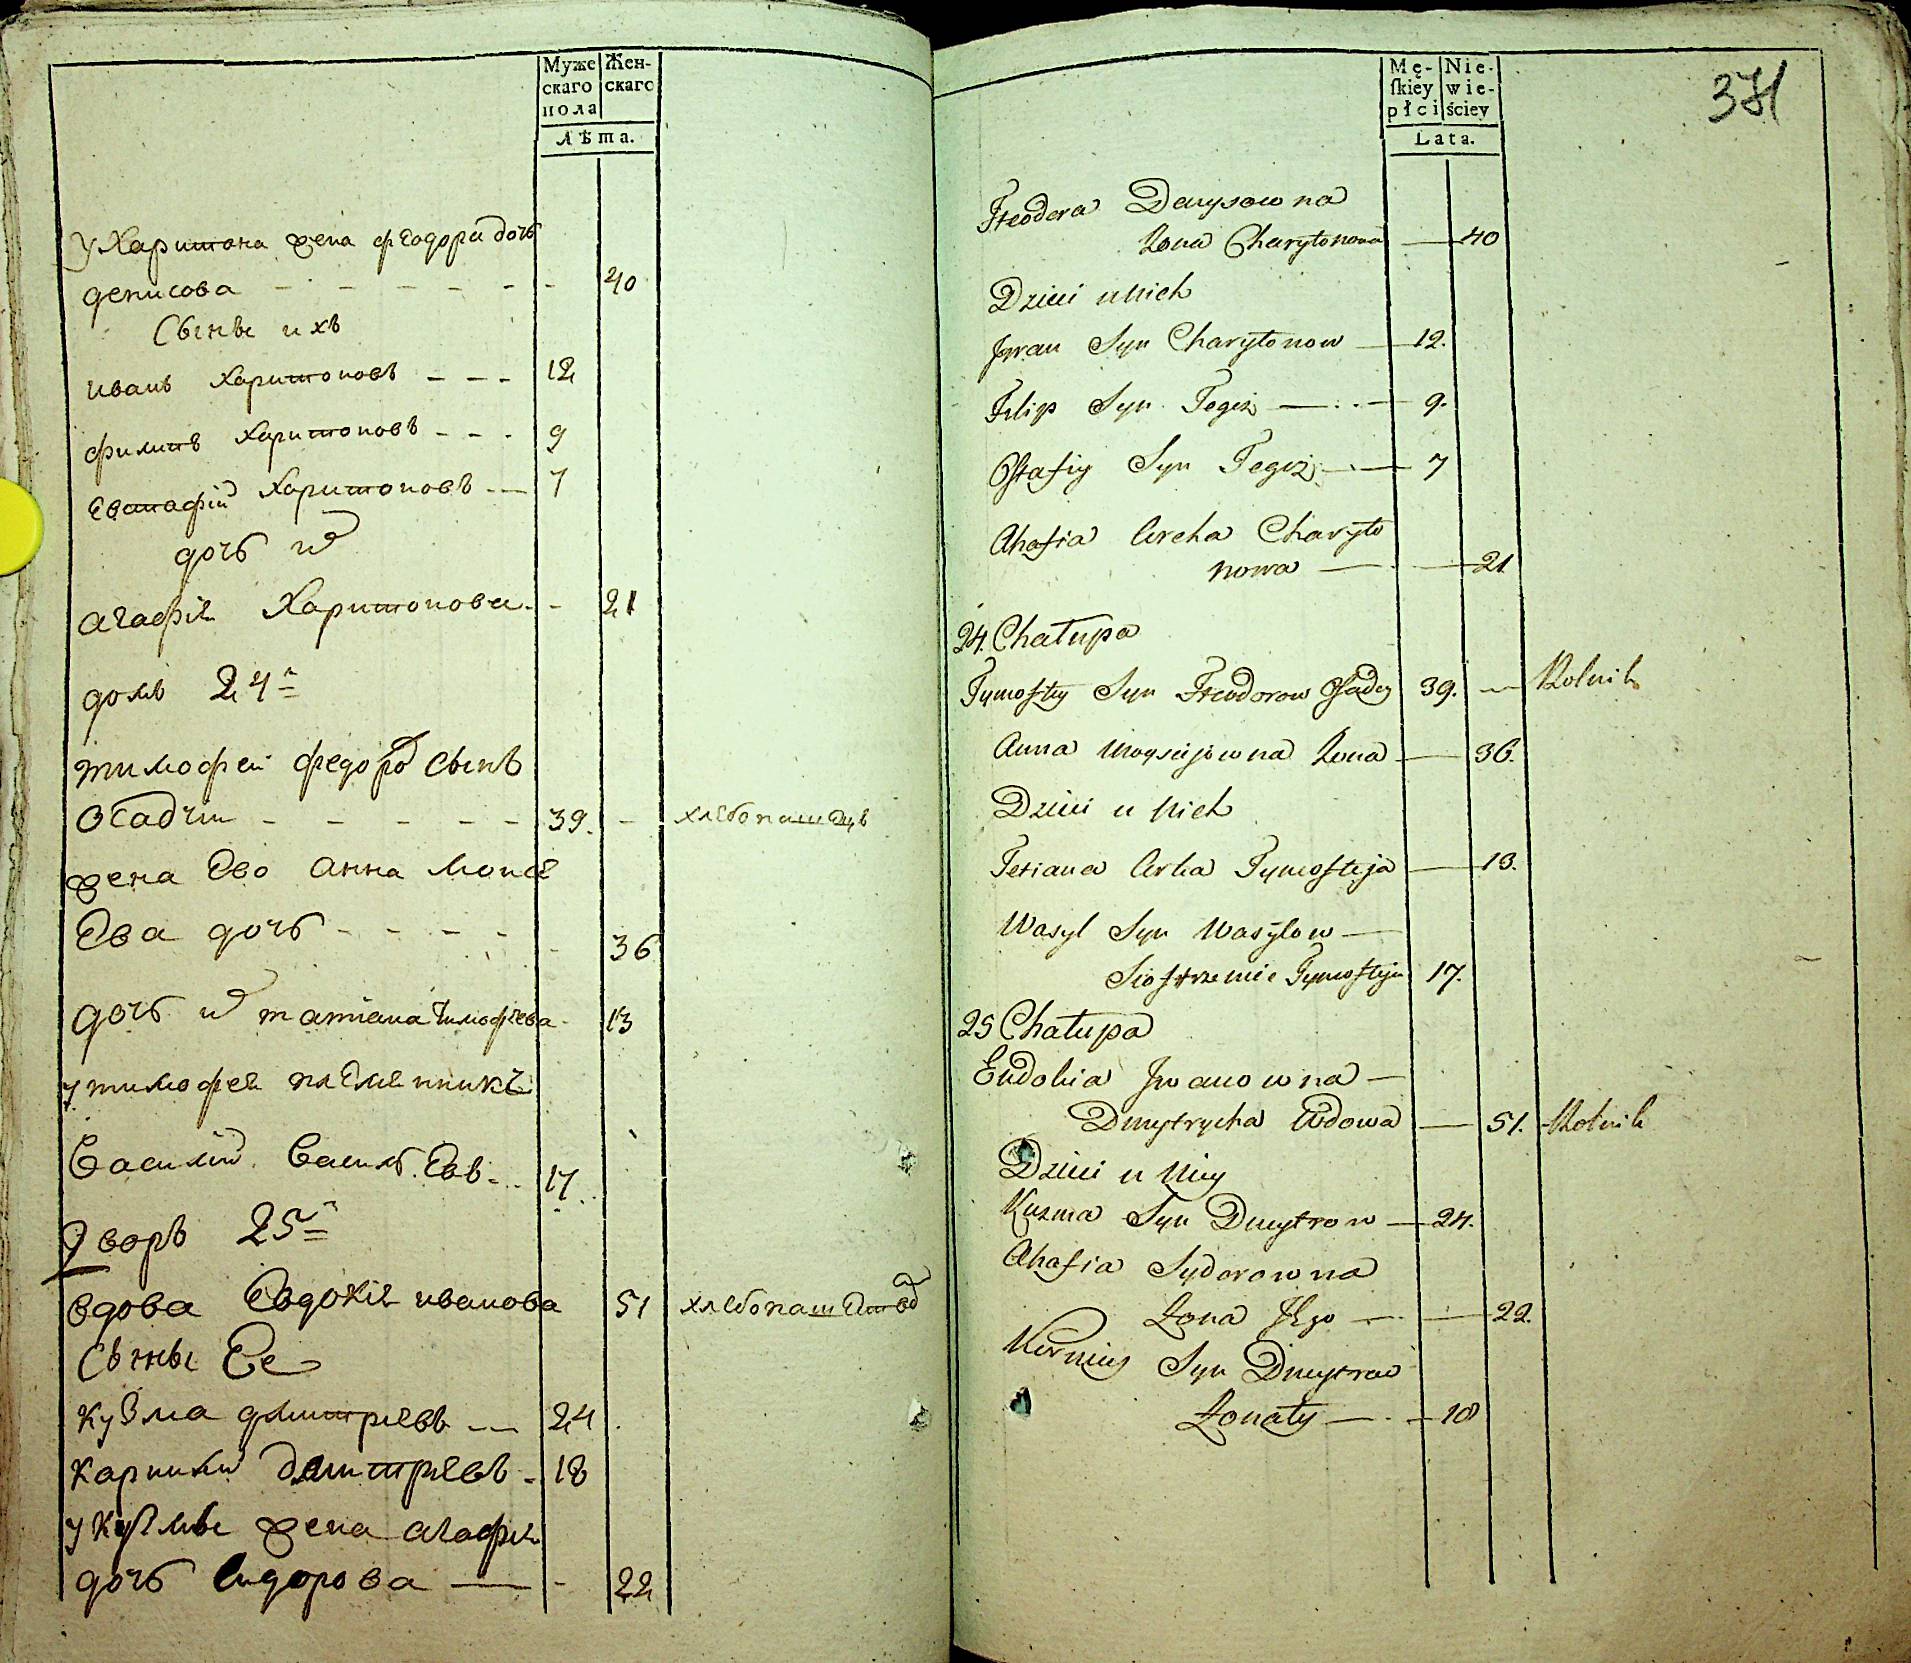 Муже Жен-
скаго скаго
пола
Лѣта.
У Харитона жена Феодора дочь
денисова - - - - - - 40
Сыны ихъ
иванъ Харитоновъ - - - 12
филипъ Харитоновъ - - - 9
Евстафій Харитоновъ - - 7
дочь их
агафия Харитонова - - 21
домъ 24й
тимофеи федоров сынъ
Осадчи - - - - - 39. - хлебопашецъ
жена Ево анна Моисе
Ева дочь - - - - - 36
дочь их татиана тимофеева - 13
у тимофея племянникъ
Василий Василь.Евъ - . . 17 . .
Дворъ 25й
вдова Евдокия иванова 51 хлебопашествод
Сыны Ее
кузма дмитриевъ - - 24
карнилий дмитриевъ - 18
у кузмы жена агафия
дочь Сидорова — - 22
Mę- Nie-
ſkiey wie-
płci ściey
Lata.
371
Fteodora Denysowna
Żona Charytonowa — 40
Dzieci u Nich
Jwan Syn Charytonow — 12.
Filip Syn Tegoż — . . — 9.
Ostafiy Syn Tegoż — . — 7
Ahafia Curka Charyto
nowa — . — 21
24. Chałupa
Tymoftey Syn Fteodorow Osadczy 39. — Rolnik
Anna Moysiejowna Żona — 36.
Dzieci u Nich
Tetiana Curka Tymofteja — 13.
Wasyl Syn Wasylow —
Siostrzeniec Tymofteja 17.
25 Chałupa
Eudokia Jwanowna —
Dmytrycha Wdowa — 51. Rolnik
Dzieci u Niey
Kuzma Syn Dmytrow — 24.
Ahafia Sydorowna
Żona Jego — . — 22.
Korniey Syn Dmytrow
Żonaty — . — 18